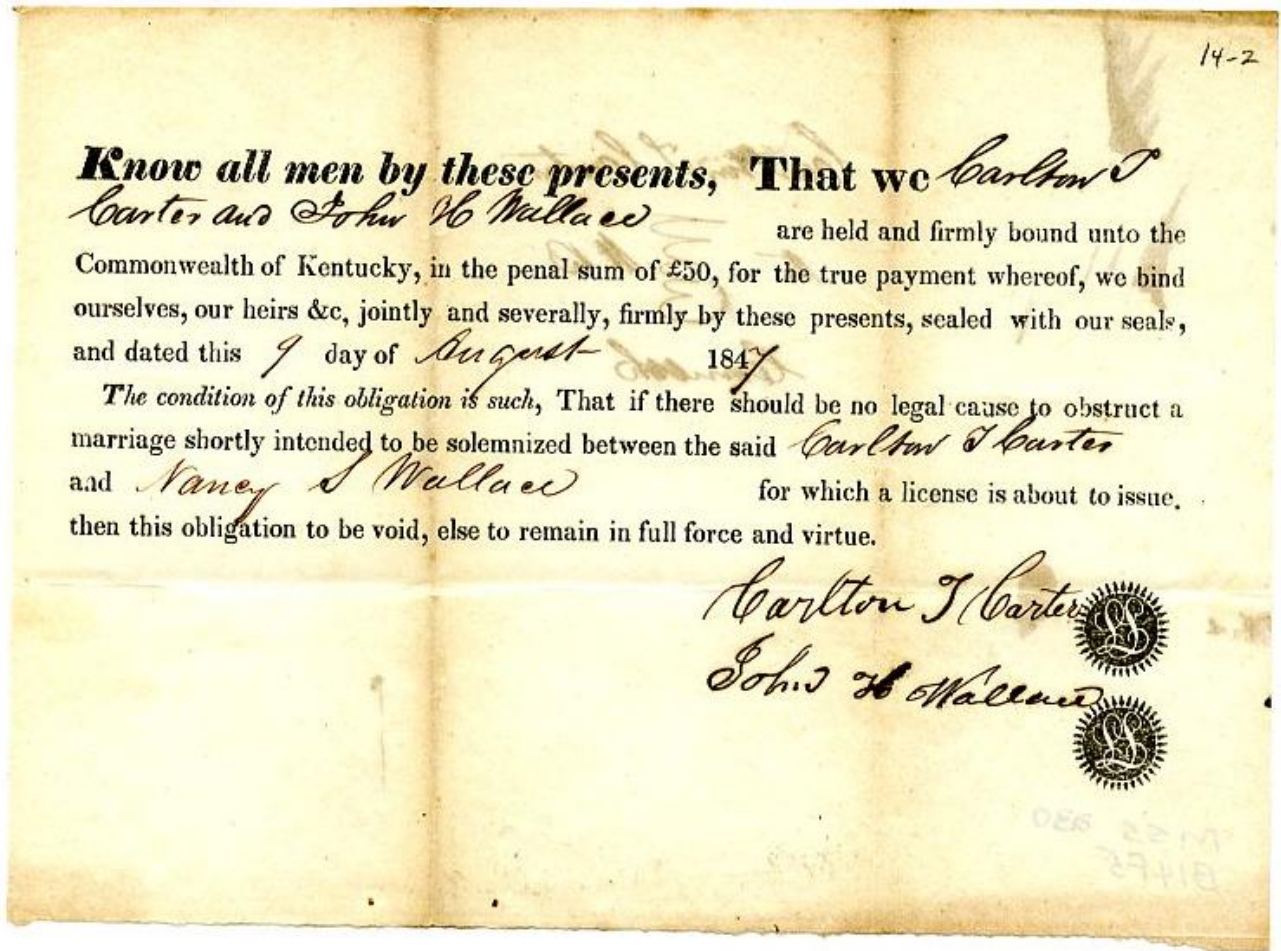 14-2
Know all men by these presents, That we Carlton T
Carter and John H Wallace are held and firmly bound unto the
Commonwealth of Kentucky, in the penal sum of £50, for the true payment whereof, we bind
ourselves, our heirs &c, jointly and severally, firmly by these presents, sealed with our seals,
and dated this 9 day of August 1847
The condition of this obligation is such, That if there should be no legal cause to obstruct a
marriage shortly intended to be solemnized between the said Carlton T Carter
and Nancy S Wallace for which a license is about to issue.
then this obligation to be void, else to remain in full force and virtue.
Carlton T Carter LS
John H Wallace LS